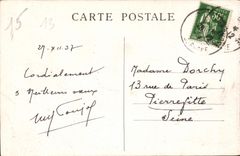 15
13
CARTE POSTALE
27.XII.37
Cordialement
& Meilleurs vœux
Madame Dorchy
13 rue de Paris
Pierrefitte
Seine